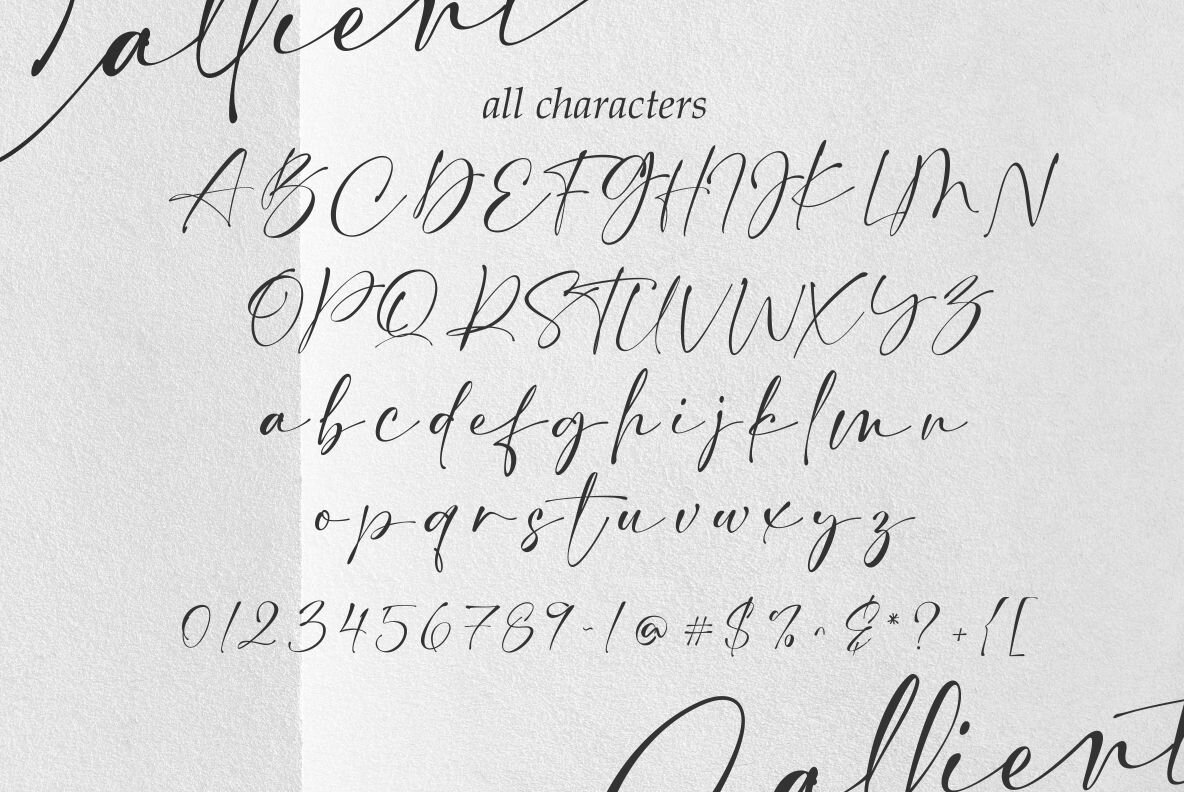 all characters
A B C D E F G H I J K L M N
O P Q R S T U V W X Y Z
a b c d e f g h i j k l m n
o p q r s t u v w x y z
0 1 2 3 4 5 6 7 8 9 ~ ! @ # $ % ^ & * ? + { [